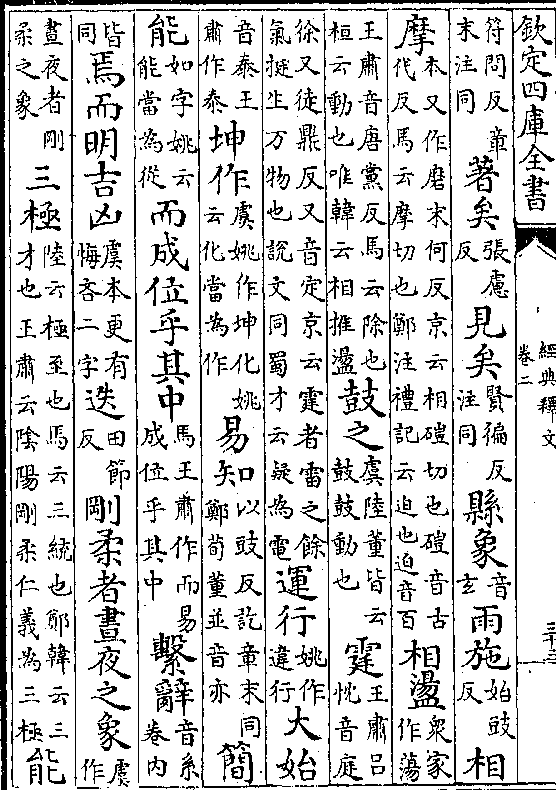 欽定四庫全書
經典釋文
卷二
符問反章末注同著矣張慮反見矣賢徧反注同縣象音玄雨施始豉反相
摩本又作磨末何反京云相磑切也磑音古代反馬云摩切也鄭注禮記云迫也迫音百相盪衆家作蕩
王肅音唐黨反馬云除也桓云動也唯韓云相推盪鼓之虞陸董皆云鼓鼓動也霆王肅吕忱音庭
徐又徒鼎反又音定京云霆者雷之餘氣挺生万物也說文同蜀才云疑為電運行姚作違行大始
音泰王肅作泰坤作虞姚作坤化姚云化當為作易知以豉反訖章末同鄭荀董並音亦簡
能如字姚云能當為從而成位乎其中馬王肅作而易成位乎其中繫辭音系卷内
皆同焉而明吉凶虞本更有悔吝二字迭田節反剛柔者晝夜之象虞作
晝夜者剛柔之象三極陸云極至也馬云三統也鄭韓云三才也王肅云陰陽剛柔仁義為三極能